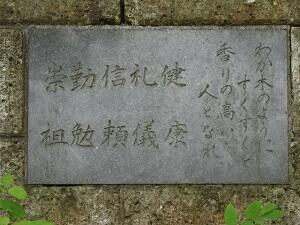 わか木のように
すくすくと
香りの高い
人となれ
健康
礼儀
信頼
勤勉
崇祖